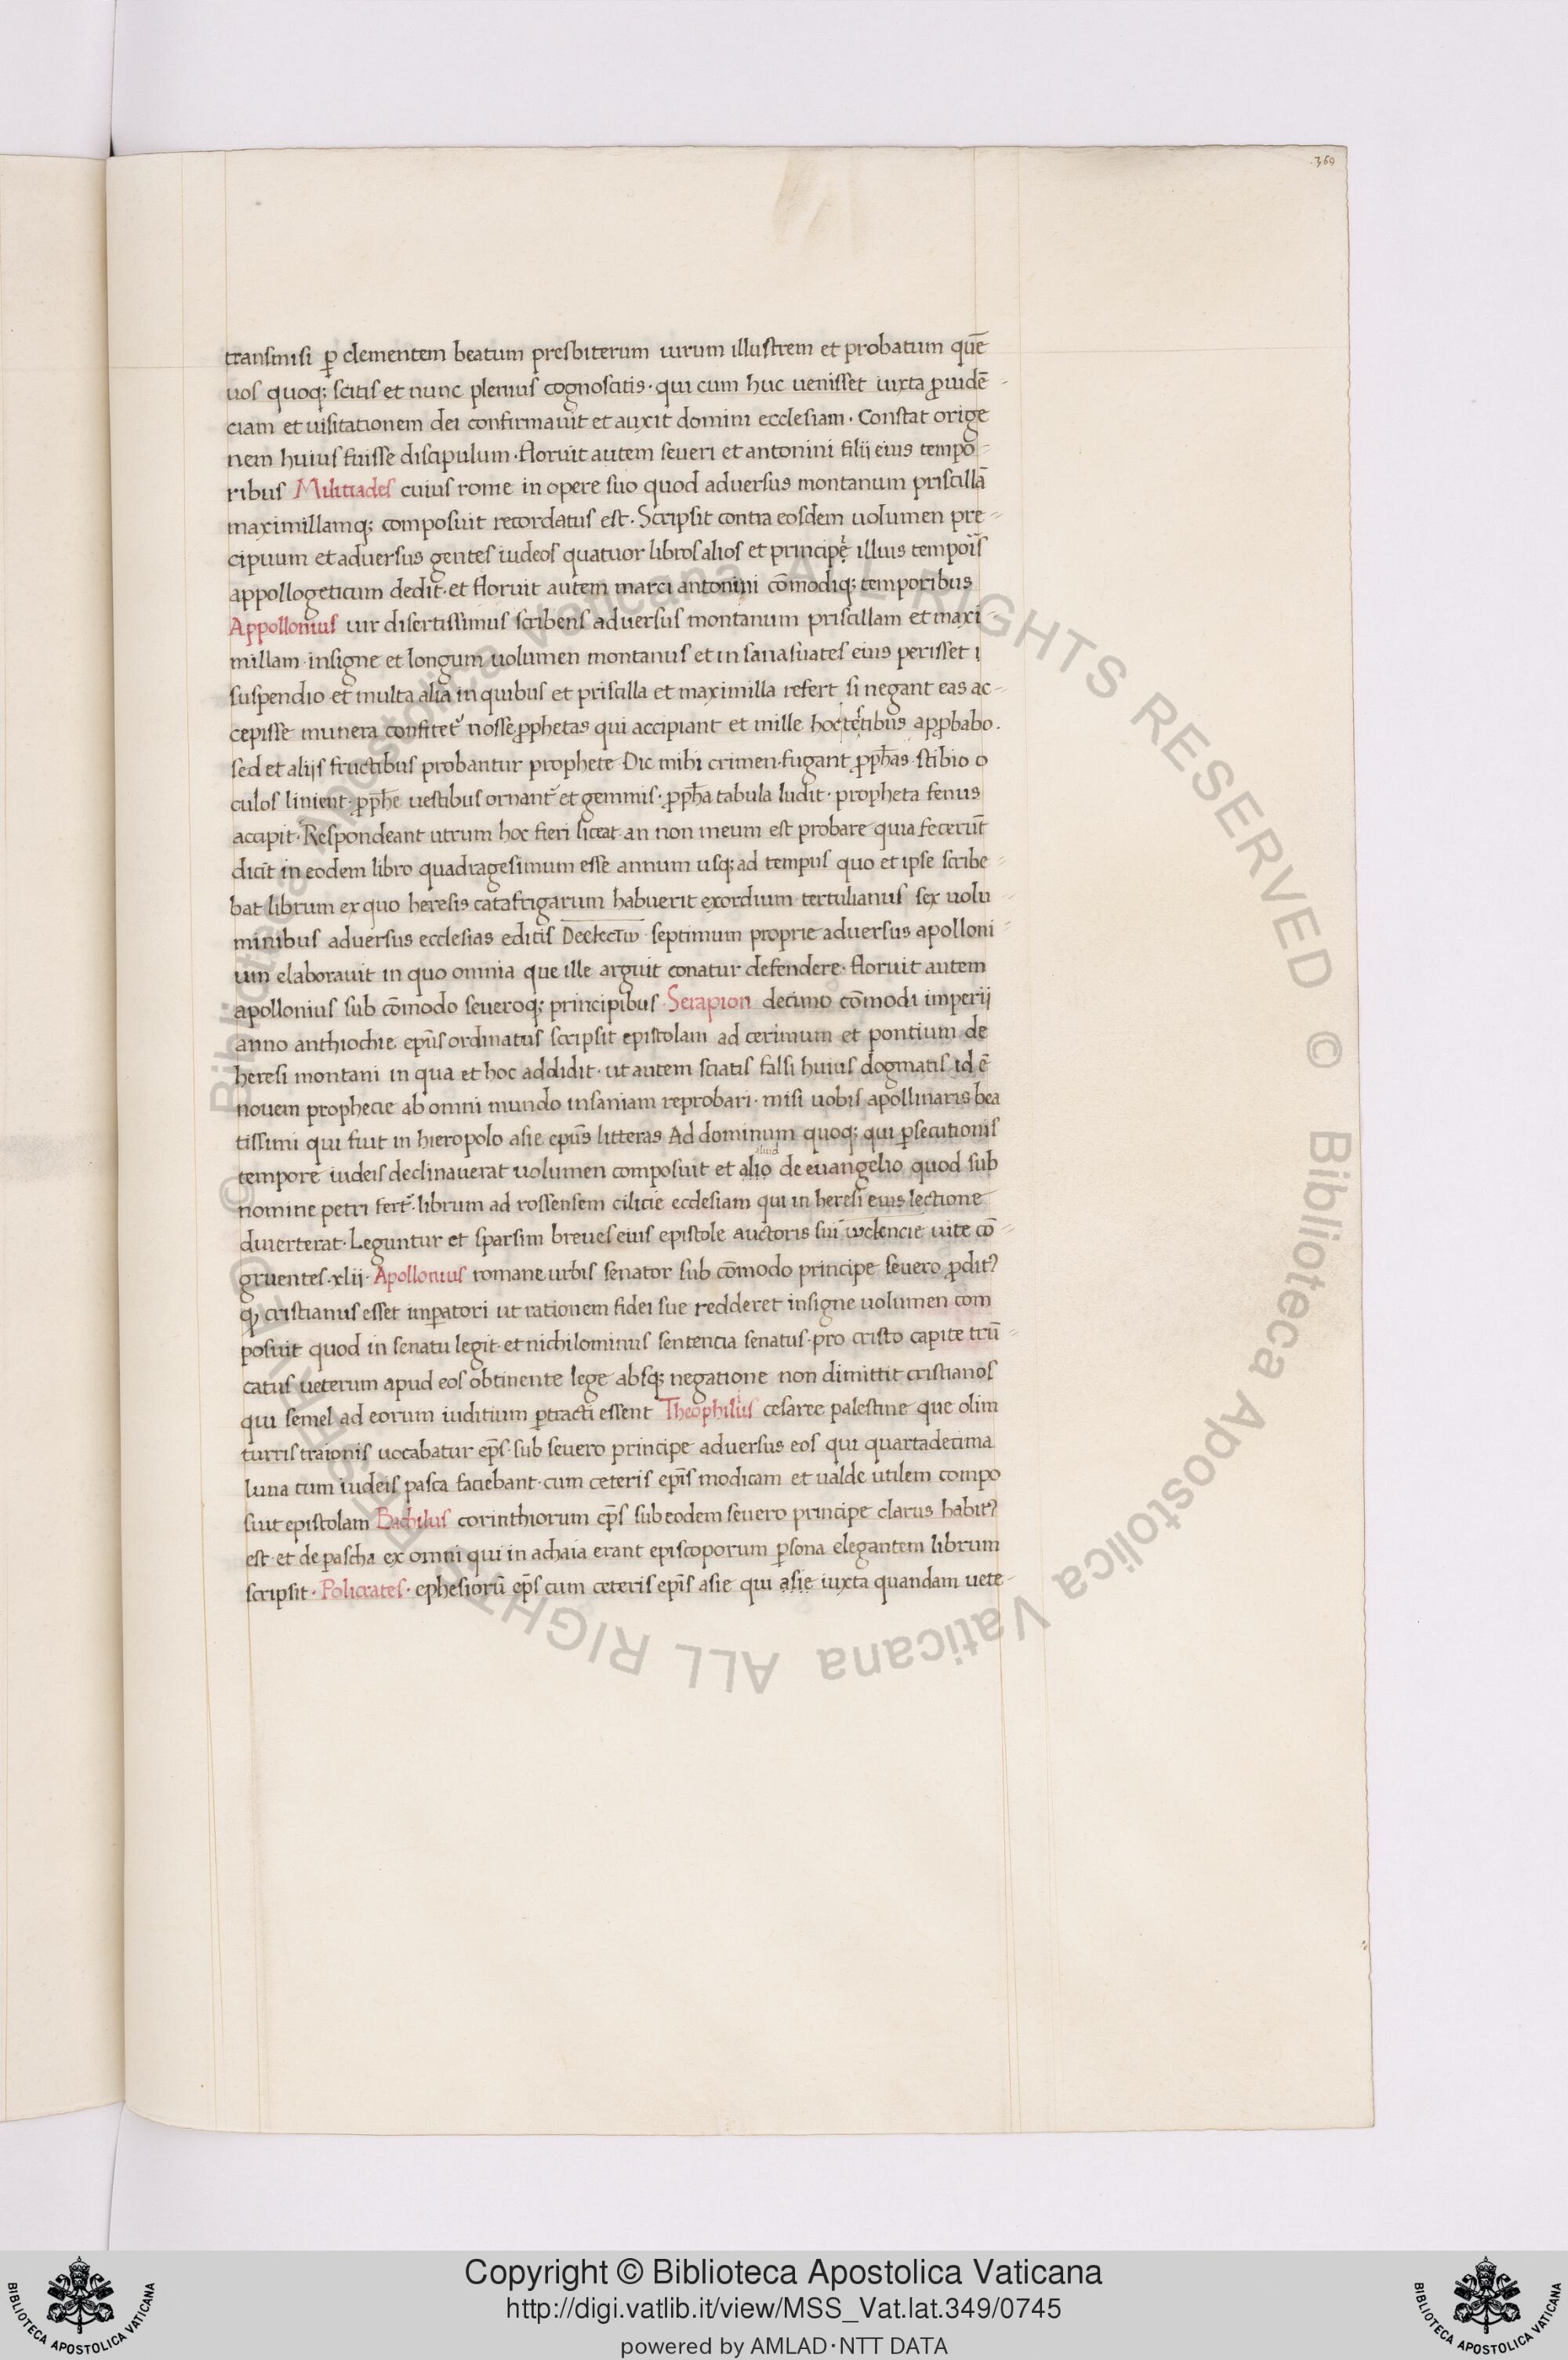 .369
transmisi ꝑ clementem beatum presbiterum uirum illustrem et probatum quē
uos quoq; scitis et nunc plenius cognoscitis · qui cum huc uenisset iuxta ꝓuidē
ciam et uisitationem dei confirmauit et auxit domini ecclesiam · Constat orige
nem huius fuisse discipulum · floruit autem seueri et antonini filij eius tempo
ribus Militiades cuius rome in opere suo quod aduersus montanum priscillā
maximillamq; composuit recordatus est · Scripsit contra eosdem uolumen pre
cipuum et aduersus gentes iudeos quatuor libros alios et principę illius tempoīs
appollogeticum dedit · et floruit autem marci antonini cōmodiq; temporibus
Appollonius uir disertissimus scribens aduersus montanum priscillam et maxi
millam · insigne et longum uolumen montanus et in sanas uates eius perisset i
suspendio et multa alia in quibus et priscilla et maximilla refert si negant eas ac
cepisse munera confitet᷑ nosse ꝓphetas qui accipiant et mille hoc testibus apꝓbabo.
sed et alijs fructibus probantur prophete · Dic mihi crimen · fugant ꝓph̄as stibio o
culos linient · ꝓph̄e uestibus ornant᷑ et gemmis · ꝓph̄a tabula ludit · propheta fenus
accipit · Respondeant utrum hoc fieri liceat · an non meum est probare quia fecerūt
dicit in eodem libro quadragesimum esse annum usq; ad tempus quo et ipse scribe
bat librum ex quo heresis catafrigarum habuerit exordium tertulianus sex uolu
minibus aduersus ecclesias editis septimum proprie aduersus apolloni
um elaborauit in quo omnia que ille arguit conatur defendere · floruit autem
apollonius sub cōmodo seueroq; principibus · Serapion decimo cōmodi imperij
anno anthiochie ep̄us ordinatus scripsit epistolam ad cerimum et pontium de
heresi montani in qua et hoc addidit · ut autem sciatis falsi huius dogmatis id ē
nouem prophecie ab omni mundo insaniam reprobari · misi uobis apollinaris bea
tissimi qui fuit in hieropolo asie ep̄us litteras Ad dominum quoq; qui ꝑsecutionis
tempore iudeis declinauerat uolumen composuit et alio de euangelio quod sub
nomine petri fert᷑ · librum ad rossensem cilicie ecclesiam qui in heresi eius lectione
diuerterat · Leguntur et sparsim breues eius epistole auctoris sui uite cō
gruentes · xlij · Apollonius romane urbis senator sub cōmodo principe seuero ꝓdit᷒
ꝙ cristianus esset imꝑatori ut rationem fidei sue redderet insigne uolumen com
posuit quod in senatu legit · et nichilominus sentencia senatus · pro cristo capite trū
catus ueterum apud eos obtinente lege absq; negatione non dimittit cristianos
qui semel ad eorum iuditium ꝑtracti essent Theophilus cesaree palestine que olim
turris traionis uocabatur ep̄s · sub seuero principe aduersus eos qui quartadecima
luna cum iudeis pasca faciebant · cum ceteris ep̄is modicam et ualde utilem compo
suit epistolam Bachilus corinthiorum ep̄s sub eodem seuero principe clarus habit᷒
est · et de pascha ex omni qui in achaia erant episcoporum ꝑsona elegantem librum
scripsit · Policrates · ephesiorū ep̄s cum ceteris ep̄is asie qui asie iuxta quandam uete
© Biblioteca Apostolica Vaticana ALL RIGHTS RESERVED © Biblioteca Apostolica Vaticana ALL RIGHTS RESERVED
Copyright © Biblioteca Apostolica Vaticana
http://digi.vatlib.it/view/MSS_Vat.lat.349/0745
powered by AMLAD·NTT DATA
BIBLIOTECA APOSTOLICA VATICANA
BIBLIOTECA APOSTOLICA VATICANA